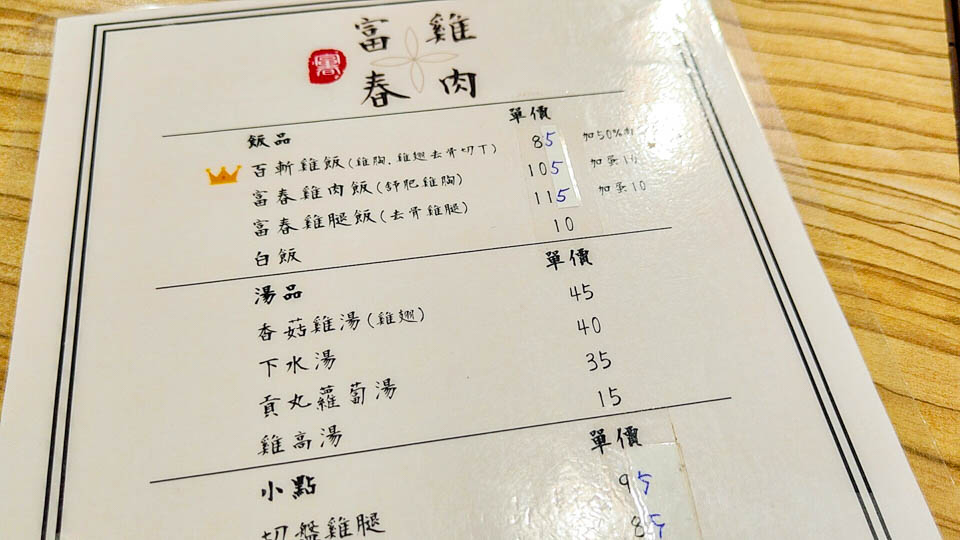 富 雞
春 肉
飯品 單價
百斬雞飯(雞胸、雞翅去骨切丁) 85 加50%
富春雞肉飯(舒肥雞胸) 105
富春雞腿飯(去骨雞腿) 115 加蛋10
白飯 10
湯品 單價
香菇雞湯(雞翅) 45
下水湯 40
貢丸蘿蔔湯 35
雞高湯 15
小點 單價
切盤雞腿 95
85